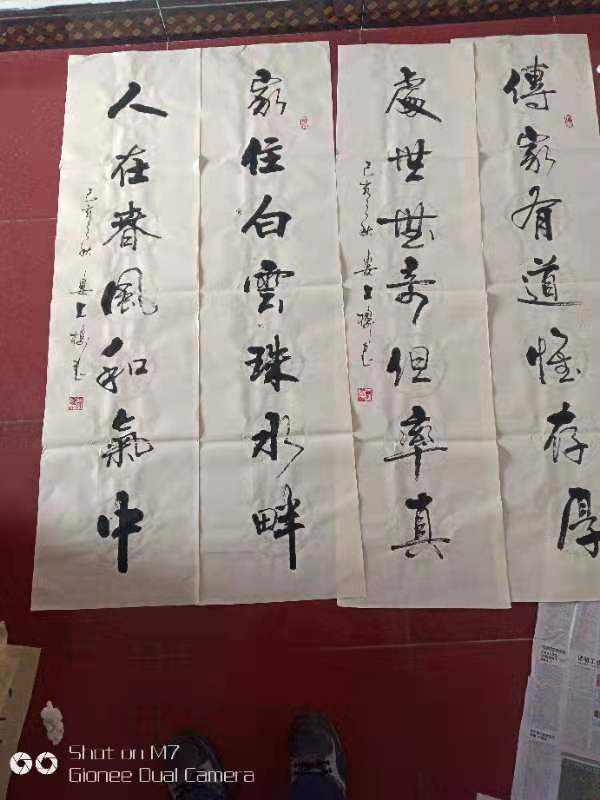 傳家有道惟存厚
處世無奇但率真
己亥之秋
家住白雲珠水畔
人在春風和氣中
己亥之秋
Shot on M7
Gionee Dual Camera